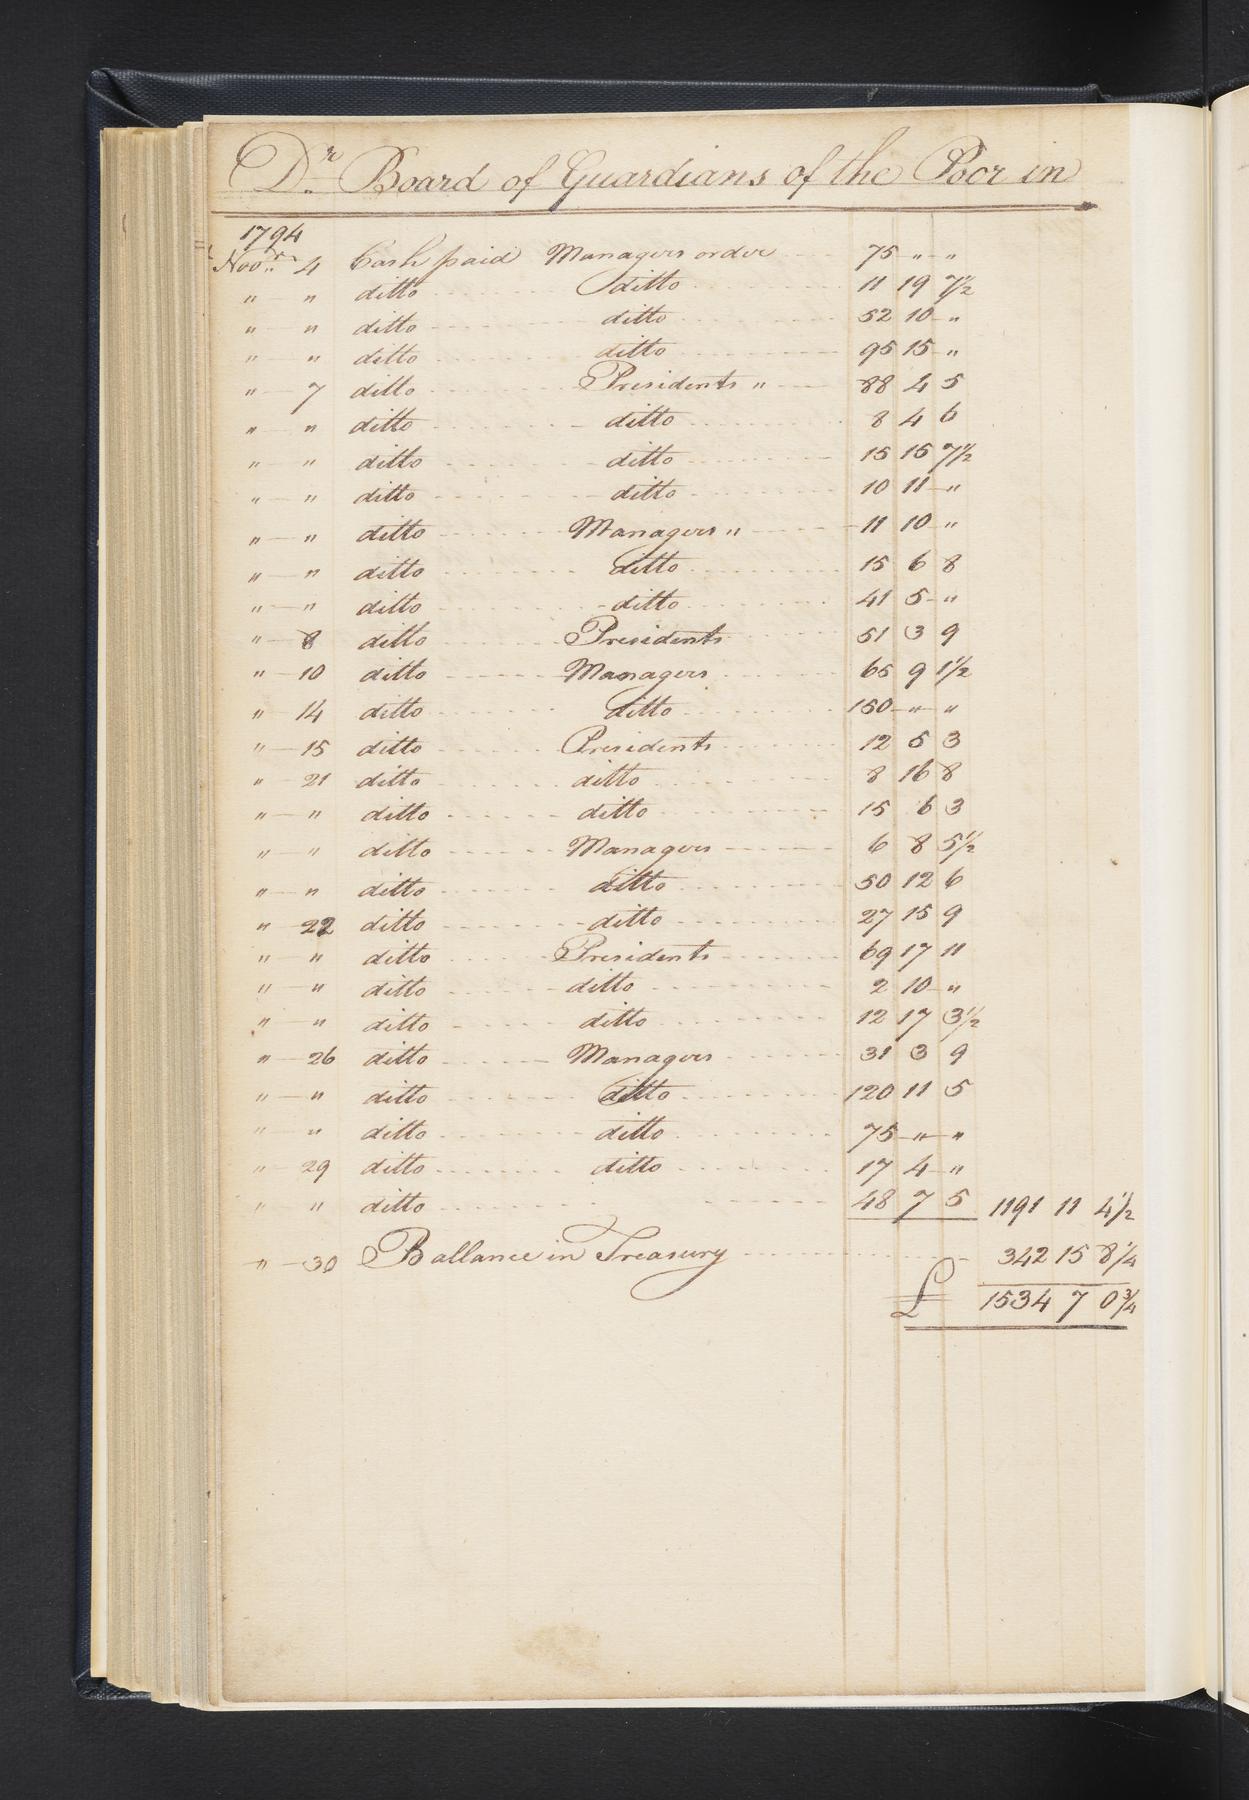 Dr Board of Guardians of the Poor in
1794
Novr 4 Cash paid Managers order 75 " "
" " ditto ditto 11 19 7 1/2
" " ditto ditto 52 10 "
" " ditto ditto 95 15 "
" 7 ditto Presidents " 88 4 5
" " ditto ditto 8 4 6
" " ditto ditto 15 15 7 1/2
" " ditto ditto 10 11 "
" " ditto Managers " 11 10 "
" " ditto ditto 15 6 8
" " ditto ditto 41 5 "
" 8 ditto Presidents 51 3 9
" 10 ditto Managers 65 9 1 1/2
" 14 ditto ditto 150 " "
" 15 ditto Presidents 12 5 3
" 21 ditto ditto 8 16 8
" " ditto ditto 15 6 3
" " ditto Managers 6 8 5 1/2
" " ditto ditto 50 12 6
" 22 ditto ditto 27 15 9
" " ditto Presidents 69 17 11
" " ditto ditto 2 10 "
" " ditto ditto 12 17 3 1/2
" 26 ditto Managers 31 3 9
" " ditto ditto 120 11 5
" " ditto ditto 75 " "
" 29 ditto ditto 17 4 "
" " ditto 48 7 5 1191 11 4 1/2
" 30 Ballance in Treasury 342 15 8 1/4
£ 1534 7 0 3/4